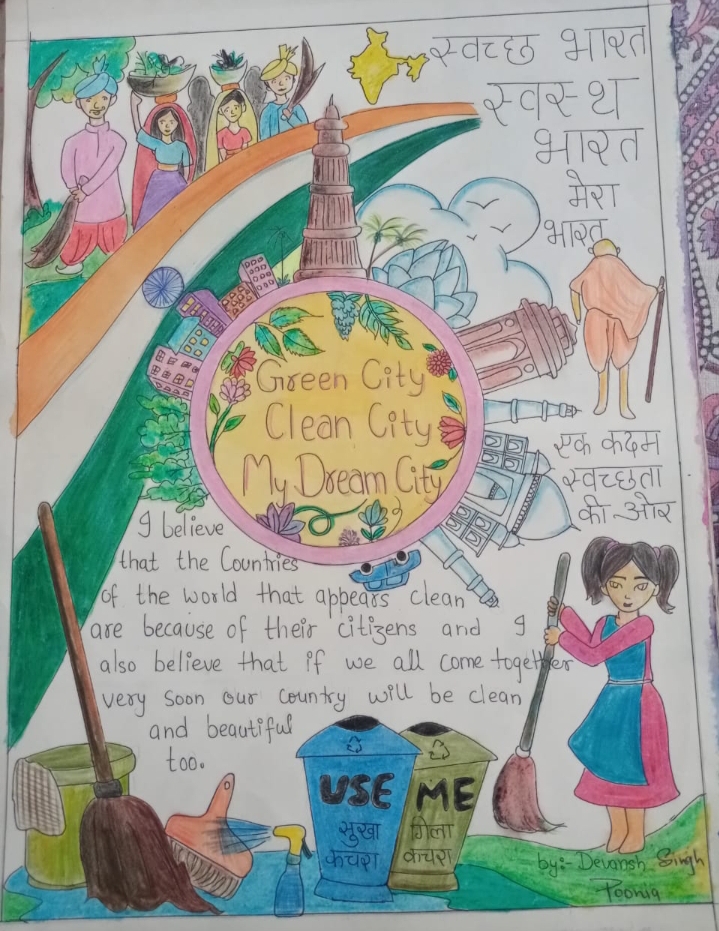 स्वच्छ भारत
स्वस्थ
भारत
मेरा
भारत
Green City
Clean City
My Dream City
एक कदम
स्वच्छता
की-ओर
I believe
that the Countries
of the world that appears clean
are because of their citizens and I
also believe that if we all come together
very soon our country will be clean
and beautiful
too.
USE
सुखा
कचरा
ME
गिला
कचरा
by:- Devansh Singh
Toonia